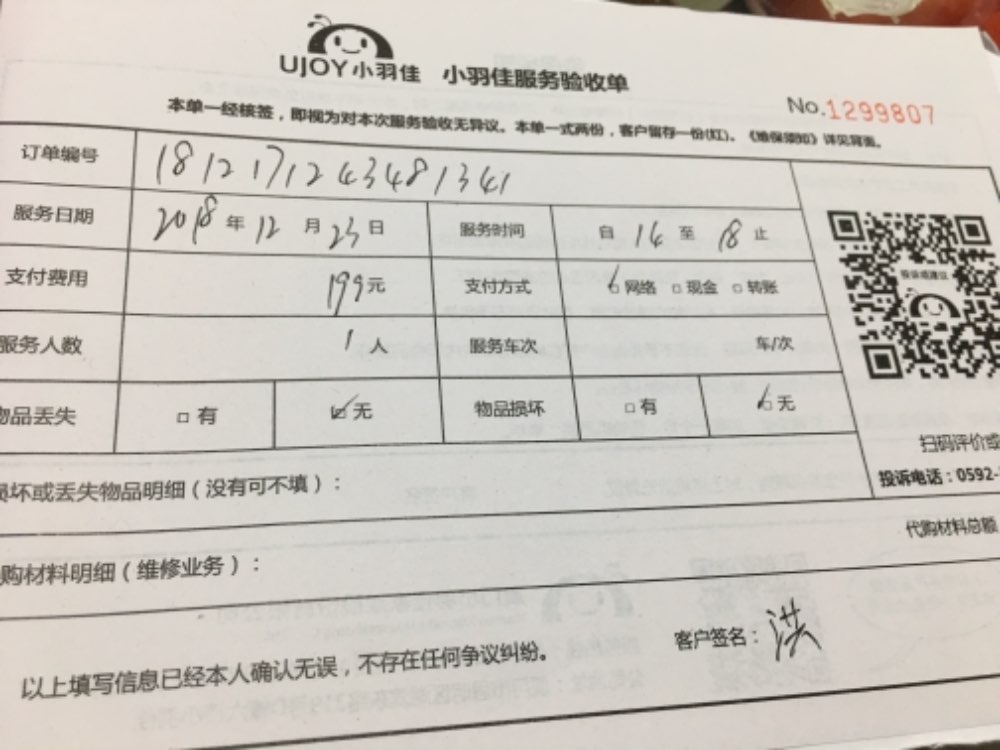 UJOY小羽佳 小羽佳服务验收单
No.1299807
本单一经核签，即视为对本次服务验收无异议。本单一式两份，客户留存一份(红)。《维保须知》详见背面。
订单编号 1812171243481341
服务日期 2018年12月23日 服务时间 自14至18止
支付费用 199元 支付方式 网络 现金 转账
投诉或建议
服务人数 1人 服务车次 车/次
物品丢失 有 无 物品损坏 有 无
扫码评价或
投诉电话：0592-
损坏或丢失物品明细（没有可不填）：
代购材料总额
购材料明细（维修业务）：
以上填写信息已经本人确认无误，不存在任何争议纠纷。 客户签名：洪